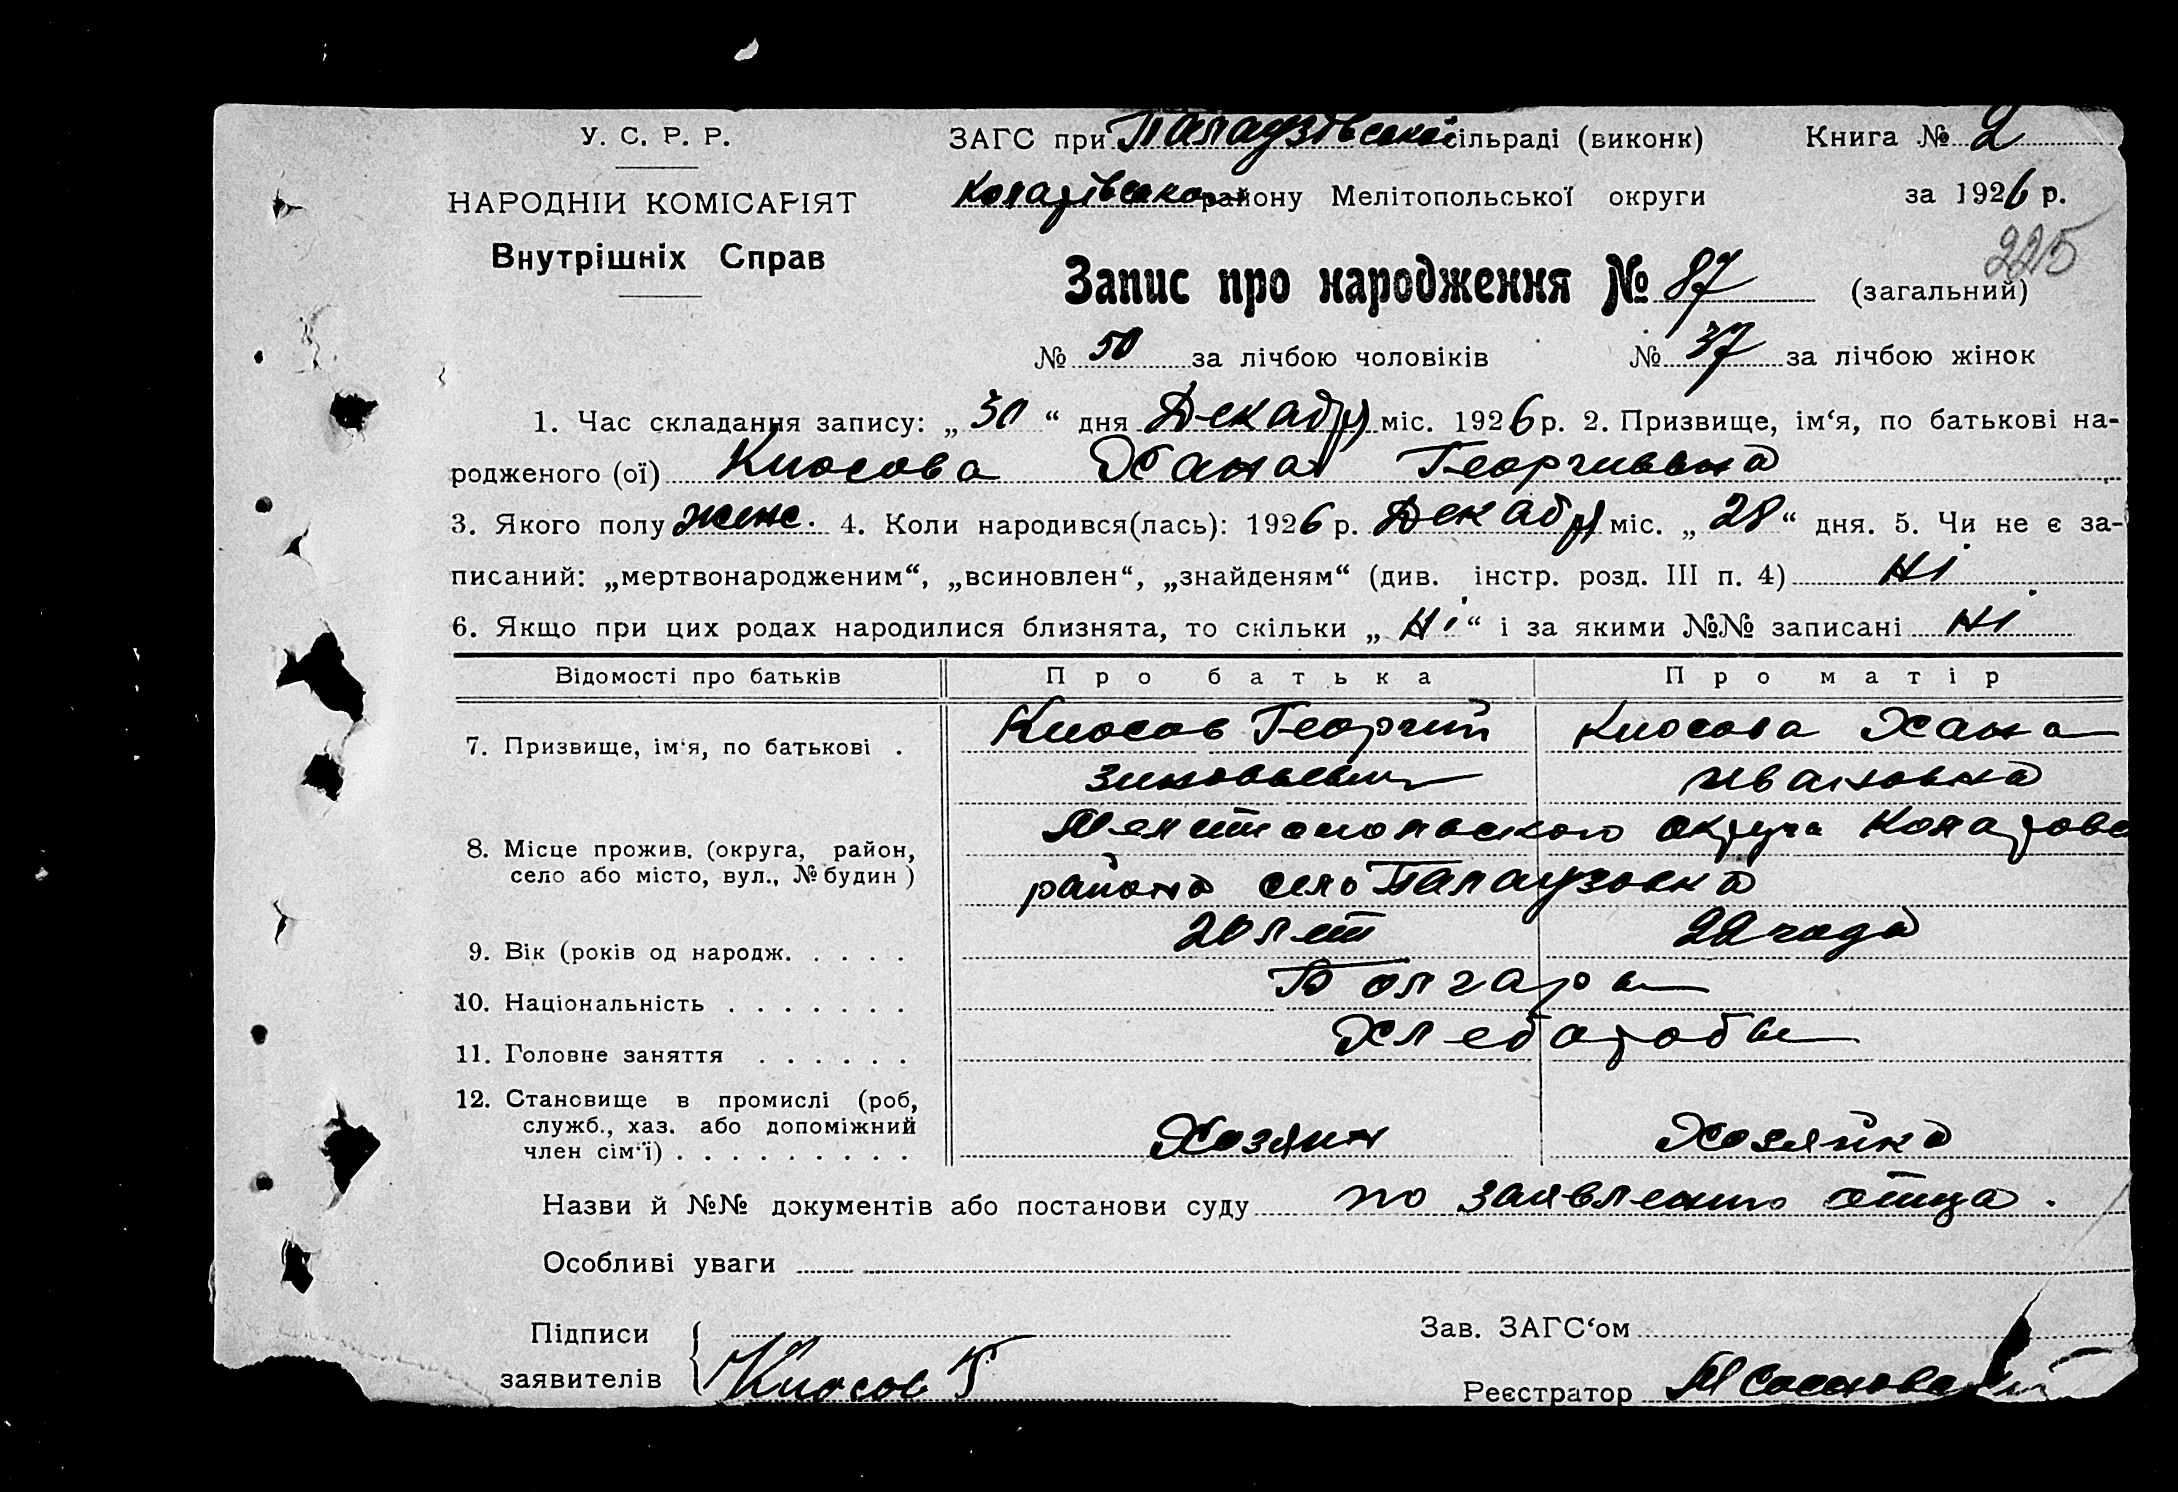 У. С. Р. Р.
НАРОДНІЙ КОМІСАРІЯТ
Внутрішніх Справ
ЗАГС при Палаузівської сільраді (виконк) Книга № 2
Коларівсько району Мелітопольської округи за 1926 р.
225
Запис про народження № 87 (загальний)
№ 50 за лічбою чоловіків № 37 за лічбою жінок
1. Час складання запису: „ 30 “ дня Декабря міс. 1926 р. 2. Призвище, ім‘я, по батькові на-
родженого (ої) Киосова Хана Георгиевна
3. Якого полу женс. 4. Коли народився(лась): 1926 р. Декабря міс. „ 28 “ дня. 5. Чи не є за-
писаний: „мертвонародженим“, „всиновлен“, „знайденям“ (див. інстр. розд. III п. 4) Ні
6. Якщо при цих родах народилися близнята, то скільки „ Ні “ і за якими №№ записані Ні
Відомості про батьків Про батька Про матір
7. Призвище, ім‘я, по батькові . Киосов Георгий Киосова Хана
Зиновьевич Ивановна
8. Місце прожив. (округа, район, село або місто, вул., № будин ) Мелитопольского округа Коларовс
района село Палаузовка
9. Вік (років од народж. . . . . 20 лет 22 года
10. Національність . . . . . . . Болгары
11. Головне заняття . . . . . . Хлеборобы
12. Становище в промислі (роб,
служб., хаз. або допоміжний
член сім‘ї) . . . . . . . . . Хозяин Хозяйка
Назви й №№ документів або постанови суду по заявлению отца.
Особливі уваги
Підписи Зав. ЗАГС‘ом
заявителів Киосов Г
Реєстратор М Сосновский